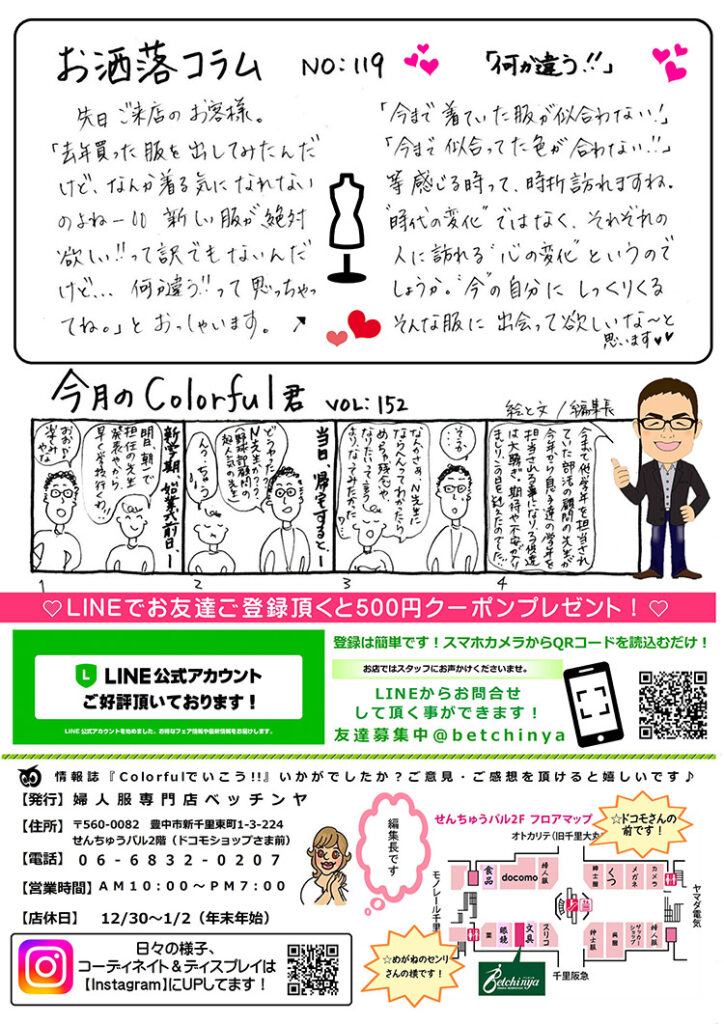 お洒落コラム NO:119 「何か違う!!」
先日ご来店のお客様。
「去年買った服を出してみたんだ
けど、なんか着る気になれない
のよねー!! 新しい服が絶対
欲しい!!って訳でもないんだ
けど... 何か違う!!って思っちゃっ
てね。」とおっしゃいます。
「今まで着ていた服が似合わない!」
「今まで似合ってた色が合わない!!」
等感じる時って、時折訪れますね。
"時代の変化"ではなく、それぞれの
人に訪れる"心の変化"というので
しょうか。"今"の自分にしっくりくる
そんな服に出会って欲しいな〜と
思います
今月のColorful君 VOL:152
絵と文/編集長
新学期始業式前日、ー
明日、朝で
担任の先生
発表やから
早く学校行くわ!!
おおお〜
楽しみ
やな
1
当日帰宅すると、ー
どうやった?
N先生か??
(野球部顧問の
超人気の先生)
2
そうか...
なんかさぁ、N先生に
ならへんってわかったら
めちゃ残念や、
なりたいって言う
よりなってみたかった
3
今まで他学年を担当され
ていた部活の顧問の先生が
今年から息子達の学年を
担当される事になり、子供達
は大騒ぎ。期待や不安が入り
まじり、この日を迎えたのでした...
4
♡LINEでお友達ご登録頂くと500円クーポンプレゼント！♡
LINE公式アカウント
ご好評頂いております！
LINE公式アカウントを始めました。お得なフェア情報や最新情報をお届けします。
登録は簡単です！スマホカメラからQRコードを読込むだけ！
お店ではスタッフにお声かけくださいませ。
LINEからお問合せ
して頂く事ができます！
友達募集中@betchinya
情報誌『Colorfulでいこう!!』いかがでしたか？ご意見・ご感想を頂けると嬉しいです♪
【発行】婦人服専門店ベッチンヤ
【住所】 〒560-0082 豊中市新千里東町1-3-224
せんちゅうパル2階（ドコモショップさま前）
【電話】 06-6832-0207
【営業時間】AM10:00〜PM7:00
【店休日】 12/30〜1/2（年末年始）
日々の様子、
コーディネイト＆ディスプレイは
【Instagram】にUPしてます！
編集長です
せんちゅうパル2F フロアマップ
オトカリテ(旧千里大丸
☆ドコモさんの
前です！
モノレール千里
食品
docomo
婦人服
紳士服
くつ
メガネ
カメラ
ヤマダ電気
薬
眼鏡
文具
スリコ
紳士服
呉服
サッカーショップ
婦人服
☆めがねのセンリ
さんの横です！
Betchinya
千里阪急